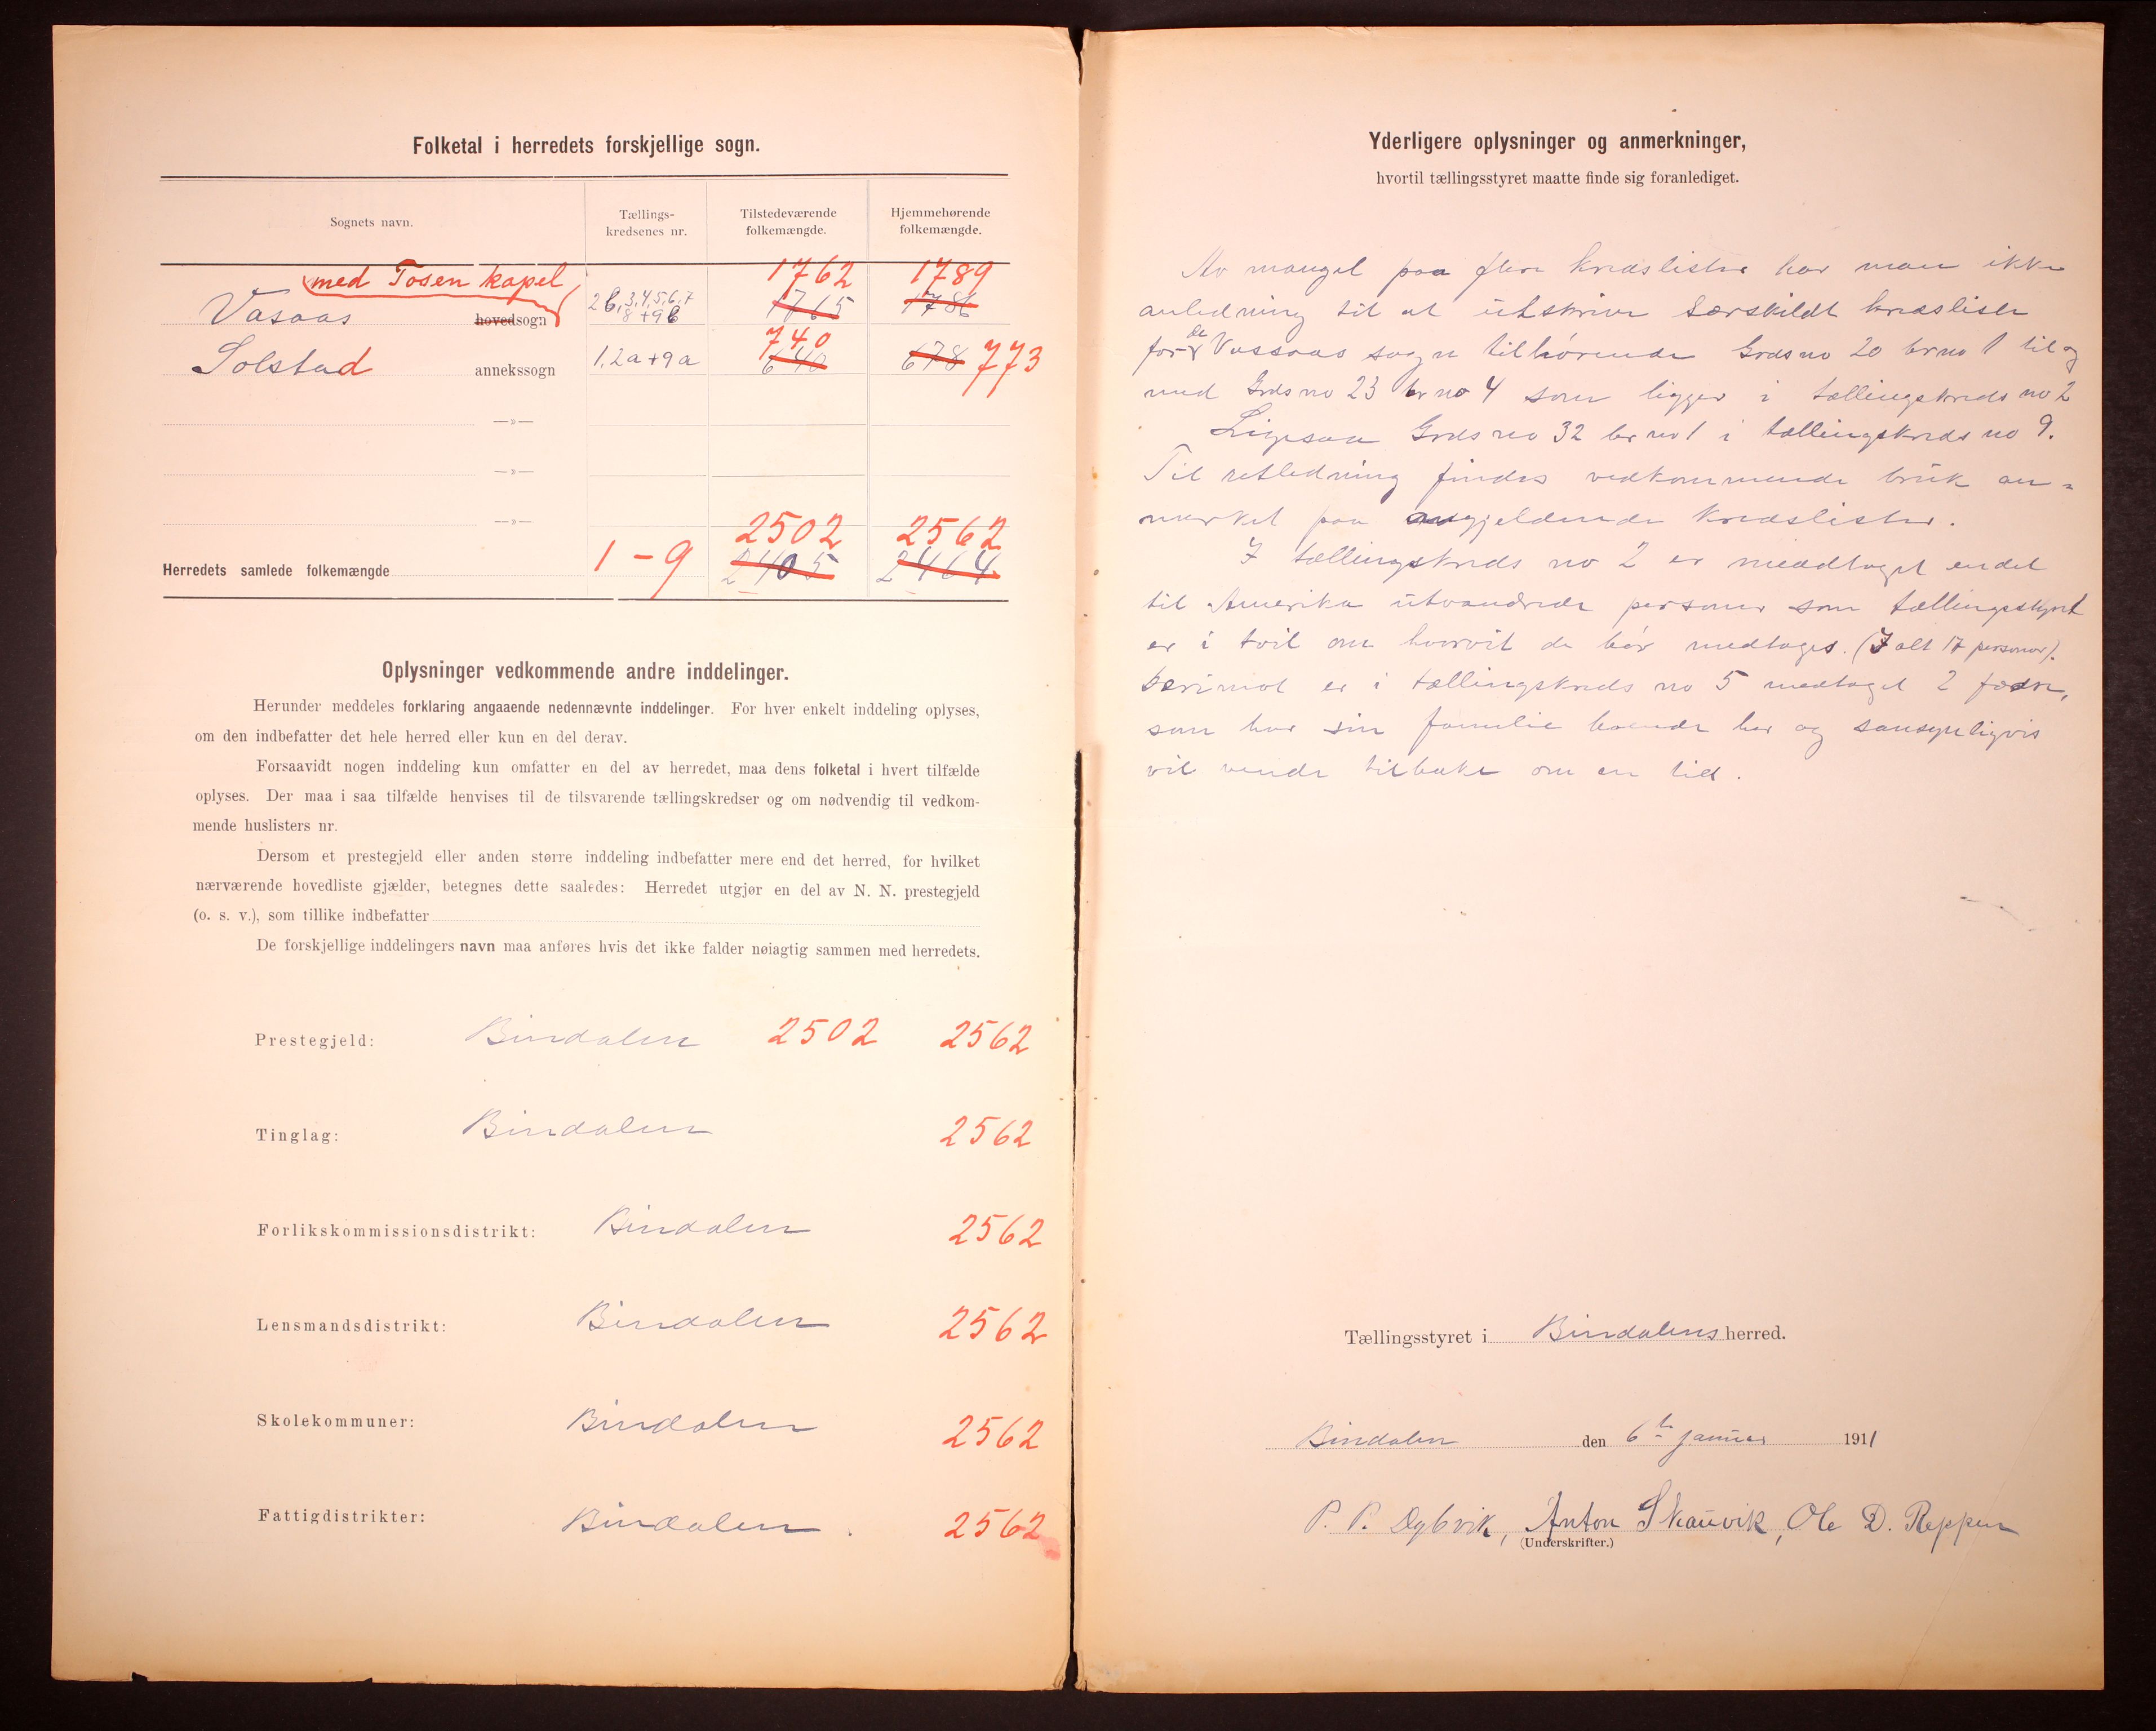 Folketal i herredets forskjellige sogn.
Sognets navn.
Tællings-
kredsenes nr.
Tilstedeværende
folkemængde.
Hjemmehørende
folkemængde.
med Tosen kapel
1762 1789
Vasaas hovedsogn 2b, 3,4,5,6,7 8+9b 1765 1786
740
Solstad annekssogn 1, 2a+9a 640 678 773
—»—
—»—
—»—
2502 2562
Herredets samlede folkemængde 1-9 2405 2464
Oplysninger vedkommende andre inddelinger.
Herunder meddeles forklaring angaaende nedennævnte inddelinger. For hver enkelt inddeling oplyses,
om den indbefatter det hele herred eller kun en del derav.
Forsaavidt nogen inddeling kun omfatter en del av herredet, maa dens folketal i hvert tilfælde
oplyses. Der maa i saa tilfælde henvises til de tilsvarende tællingskredser og om nødvendig til vedkom-
mende huslisters nr.
Dersom et prestegjeld eller anden større inddeling indbefatter mere end det herred, for hvilket
nærværende hovedliste gjælder, betegnes dette saaledes: Herredet utgjør en del av N. N. prestegjeld
(o. s. v.), som tillike indbefatter
De forskjellige inddelingers navn maa anføres hvis det ikke falder nøiagtig sammen med herredets.
Prestegjeld: Bindalen 2502 2562
Tinglag: Bindalen 2562
Forlikskommissionsdistrikt: Bindalen 2562
Lensmandsdistrikt: Bindalen 2562
Skolekommuner: Bindalen 2562
Fattigdistrikter: Bindalen. 2562
Yderligere oplysninger og anmerkninger,
hvortil tællingsstyret maatte finde sig foranlediget.
Av mangel paa flere kredslister har man ikke
anledning til at utskrive særskildt kredslister
for de Vassaas sogn tilhørende Grds no 20 br no 1 til og
med Grds no 23 br no 4 som ligger i tællingskreds no 2
Ligesaa Grds no 32 br no 1 i tællingskreds no 9.
Til retledning findes vedkommende bruk an=
merket paa angjeldende kredslister.
I tællingskreds no 2 er meddtaget endel
til Amerika utvandrede personer som tællingsstyret
er i tvil om hvorvit de bør medtages. (I alt 17 personer).
Derimot er i tællingskreds no 5 medtaget 2 fædre,
som har sin familie boende her og sansynligvis
vil vende tilbake om en tid.
Tællingsstyret i Bindalens herred.
Bindalen den 6te januar 1911
P. P. Dybvik, Anton Skauvik, Ole D. Reppen
(Underskrifter.)